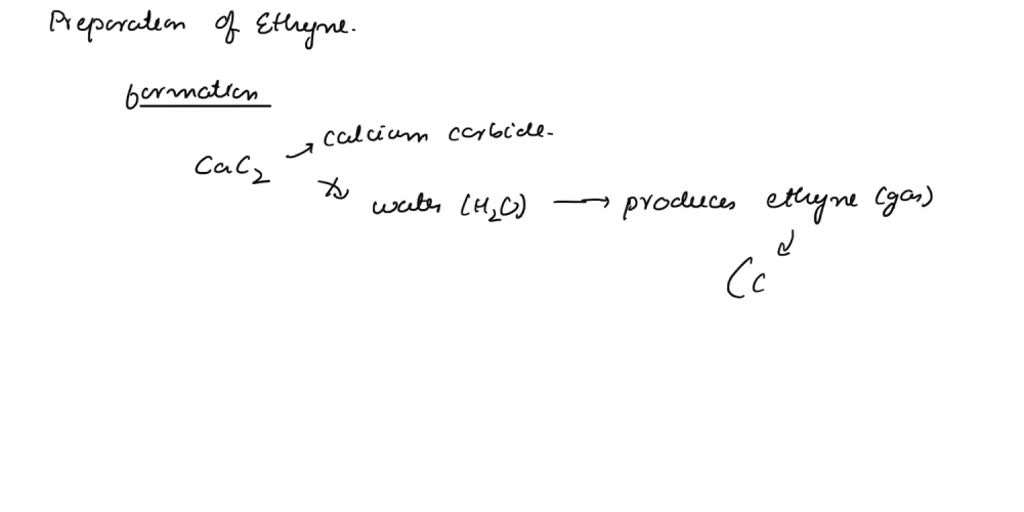 Preparation of Ethyne.
formation
CaC2 → calcium carbide.
water (H2O) → produces ethyne (gas)
(C